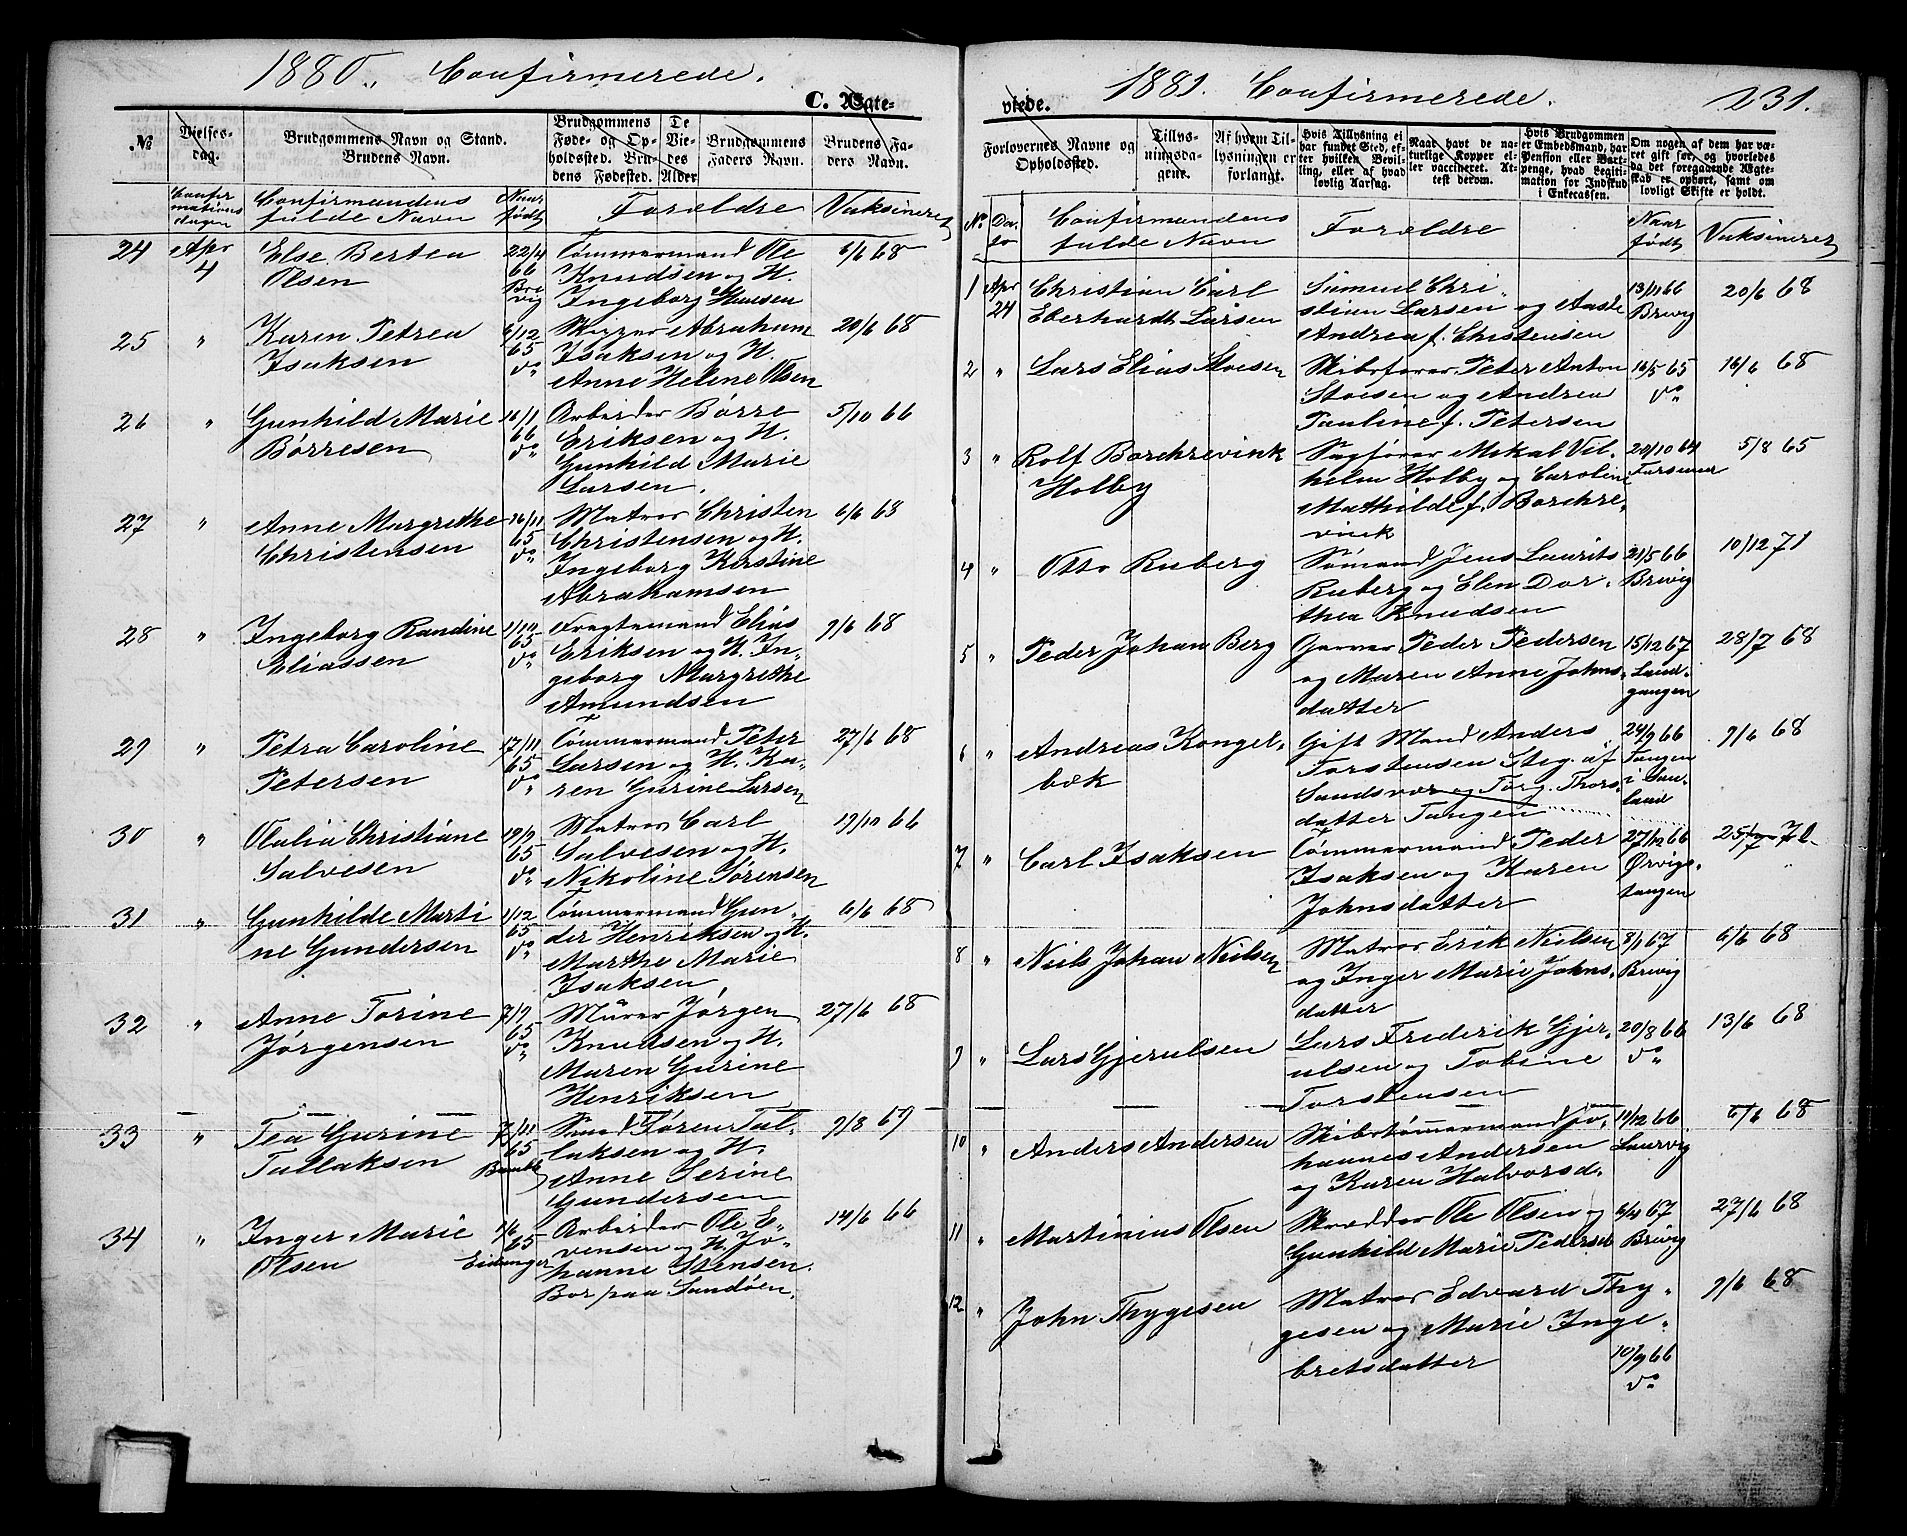 1880. Confirmerede.
C. Ægte-
№
Vielses-
dag.
Brudgommens Navn og Stand.
Brudens Navn.
Brudgommens
Føde- og Op-
holdssted. Bru-
dens Fødested.
De
Vie-
des
Alder
Brudgommens
Faders Navn.
Brudens Fa-
ders Navn.
Confir
mations
dagen
Confirmandens
fulde Navn
Naar
født
Forældre
Vaksineret
24 Apr 4
Else Bertea
Olsen
22/4
66
Bre
vig
Tømmermand Ole
Knudsen og H.
Ingeborg Hansen
6/6 68
25 "
Karen Petrea
Isaksen
6/12
65
do
Skipper Abraham
Isaksen og H.
Anne Helene Olsen
20/6 68
26 "
Gunhild Marie
Børresen
16/1
66
do
Arbeider Børre
Eriksen og H.
Gunhild Marie
Larsen.
5/10 66
27 "
Anne Margrethe
Christensen
16/11
65
do
Matros Christen
Christensen og H.
Ingeborg Kirstine
Abrahamsen
6/6 68
28 "
Ingeborg Randine
Eliassen
1/10
65
do
Fragtemand Elias
Eriksen og H. In-
geborg Margrethe
Amundsen
9/6 68
29 "
Petra Caroline
Petersen
17/11
65
do
Tømmermand Peter
Larsen og H. Ka-
ren Gurine Larsen
27/6 68
30 "
Olalia Christiane
Salvesen
19/9
65
do
Matros Carl
Salvesen og H.
Nikoline Sørensen
19/10 66
31 "
Gunhilde Marti
ne Gundersen
1/12
65
do
Tømmermand Gun-
der Henriksen og H.
Marthe Marie
Isaksen,
6/6 68
32 "
Anne Torine
Jørgensen
7/9
65
do
Murer Jørgen
Knudsen og H.
Maren Gurine
Henriksen
27/6 68
33 "
Tea Gurine
Tallaksen
7/11
65
Bamble
Sømand Søren Tal-
laksen og H.
Anne Serine
Gundersen
9/8 69
34 "
Inger Marie
Olsen
1/6
65
Eidanger
Arbeider Ole E-
vensen og H. Jo-
hanne Stensen.
Bor paa Sandøen.
14/6 66
1881. Confirmerede. 231.
viede.
Forlovernes Navne og
Opholdssted.
Tillys-
ningsda-
gene.
Af hvem Til-
lysningen er
forlangt.
Hvis Tillysning ei
har fundet Sted, ef-
ter hvilken Bevil-
ling, eller af hvad
lovlig Aarsag.
Naar havt de na-
turlige Kopper el-
ler vaccineret. At-
test derom.
Hvis Brudgommen
er Embedsmand, har
Pension eller Vart-
penge, hvad Legiti-
mation for Indskud
i Enkecassen.
Om nogen af dem har væ-
ret gift før, og hvorledes
da det foregaaende Ægte-
skab er ophørt, samt om
lovligt Skifte er holdt.
N.
Da-
to
Confirmandens
fulde Navn
Forældre
Naar
født
Vaksineret
1 Apr 24
Christian Carl
Eberhardt Larsen
Samuel Chri-
stian Larsen og Aaste
Andrea f. Christensen
13/11 66
Brevig
20/6 68
2 "
Lars Elias Stoesen
Skibsfører Peter Anton
Stoesen og Andrea
Pauline f. Petersen
16/5 65
do
16/6 68
3 "
Rolf Borchrevink
Holby
Sagfører Mikal Vil-
helm Holby og Caroline
Mathilde f. Borchre-
vink
20/10 64
5/8 65
4 "
Otto Ruberg
Sømand Jens Laurits
Ruberg og Elen Dor-
thea Knudsen
21/5 66
Brevig
10/12 71
5 "
Peder Johan Berg
Garver Peder Pedersen
og Maren Anne Johns-
datter
15/12 67
Land-
gangen
28/7 68
6 "
Andreas Kongel-
bæk
Gift Mand Anders
Torstensen Steg. af
Sandsvær og Torg. Thors-
datter Tangen
24/9 66
Tangen
i San-
land
9/6 68
7 "
Carl Isaksen
Tømmermand Peder
Isaksen og Karen
Johnsdatter
27/12 66
Ørvigs-
tangen
25/7 70
8 "
Niels Johan Nielsen
Matros Erik Nielsen
og Inger Marie Johns-
datter
8/1 67
Brevig
6/6 68
9 "
Lars Gjerulsen
Lars Frederik Gjer-
ulsen og Tobine
Torstensen
20/8 66
do
13/6 68
10 "
Anders Andersen
Skibstømmermand Jo-
hannes Andersen
og Karen Halvorsd.
11/12 66
Laurvig
6/6 68
11 "
Martinius Olsen
Skrædder Ole Olsen og
Gunhild Marie Pedersd
6/4 67
Brevig
27/6 68
12 "
John Thygesen
Matros Edvard Thy-
gesen og Marie Inge-
bretsdatter
10/9 66
do
9/6 68